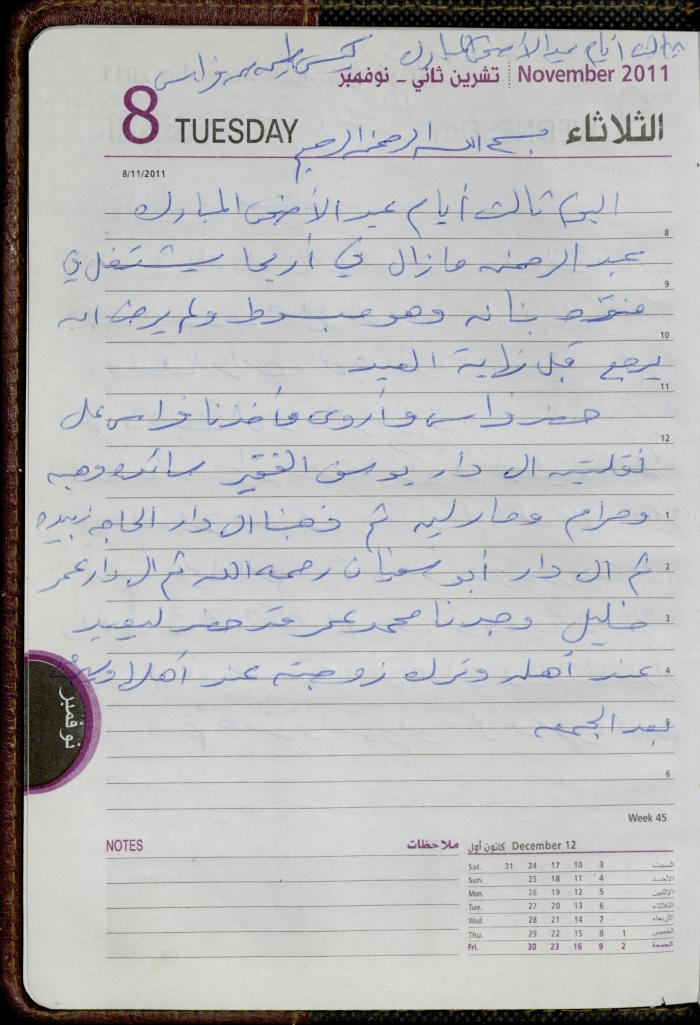 ثالث أيام عيد الأضحى المبارك
November 2011 تشرين ثاني - نوفمبر
8 TUESDAY الثلاثاء
بسم الله الرحمن الرحيم
8/11/2011
اليوم ثالث أيام عيد الأضحى المبارك
8
عبد الرحمن مازال في أريحا يشتغل في
9
منتزه بنانه وهو مبسوط ولم يرض أن
10
يرجع قبل نهاية العيد
11
حضر فراس وأروى وأخذنا فراس على
12
نقلتين الى دار يوسف الفقير
ومرام ومارلين ثم ذهبنا الى دار الحاجه زبيده
1
ثم الى دار أبو سفيان رحمه الله ثم الى دار عمر
2
خليل وجدنا محمد عمر قد حضر ليعيد
3
عند أهله وترك زوجته عند أهلها
4
بعد الجمعه
5
6
نوفمبر
Week 45
NOTES ملاحظات
كانون أول December 12
Sat. 31 24 17 10 3 السبت
Sun. 25 18 11 4 الأحد
Mon. 26 19 12 5 الإثنين
Tue. 27 20 13 6 الثلاثاء
Wed. 28 21 14 7 الأربعاء
Thu. 29 22 15 8 1 الخميس
Fri. 30 23 16 9 2 الجمعة